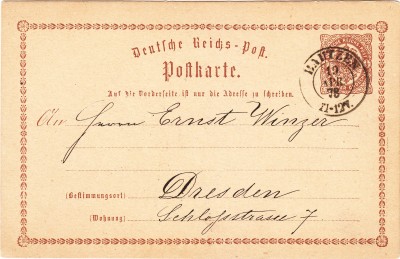 Deutsche Reichs-Post.
Postkarte.
Auf die Vorderseite ist nur die Adresse zu schreiben.
BAUTZEN
12
APR
76
11-12V.
An Herrn Ernst Winzer
(Bestimmungsort) Dresden
(Wohnung) Schloßstrasse 7